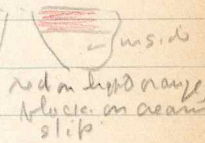 inside
red on light orange
block. on cream
slip.